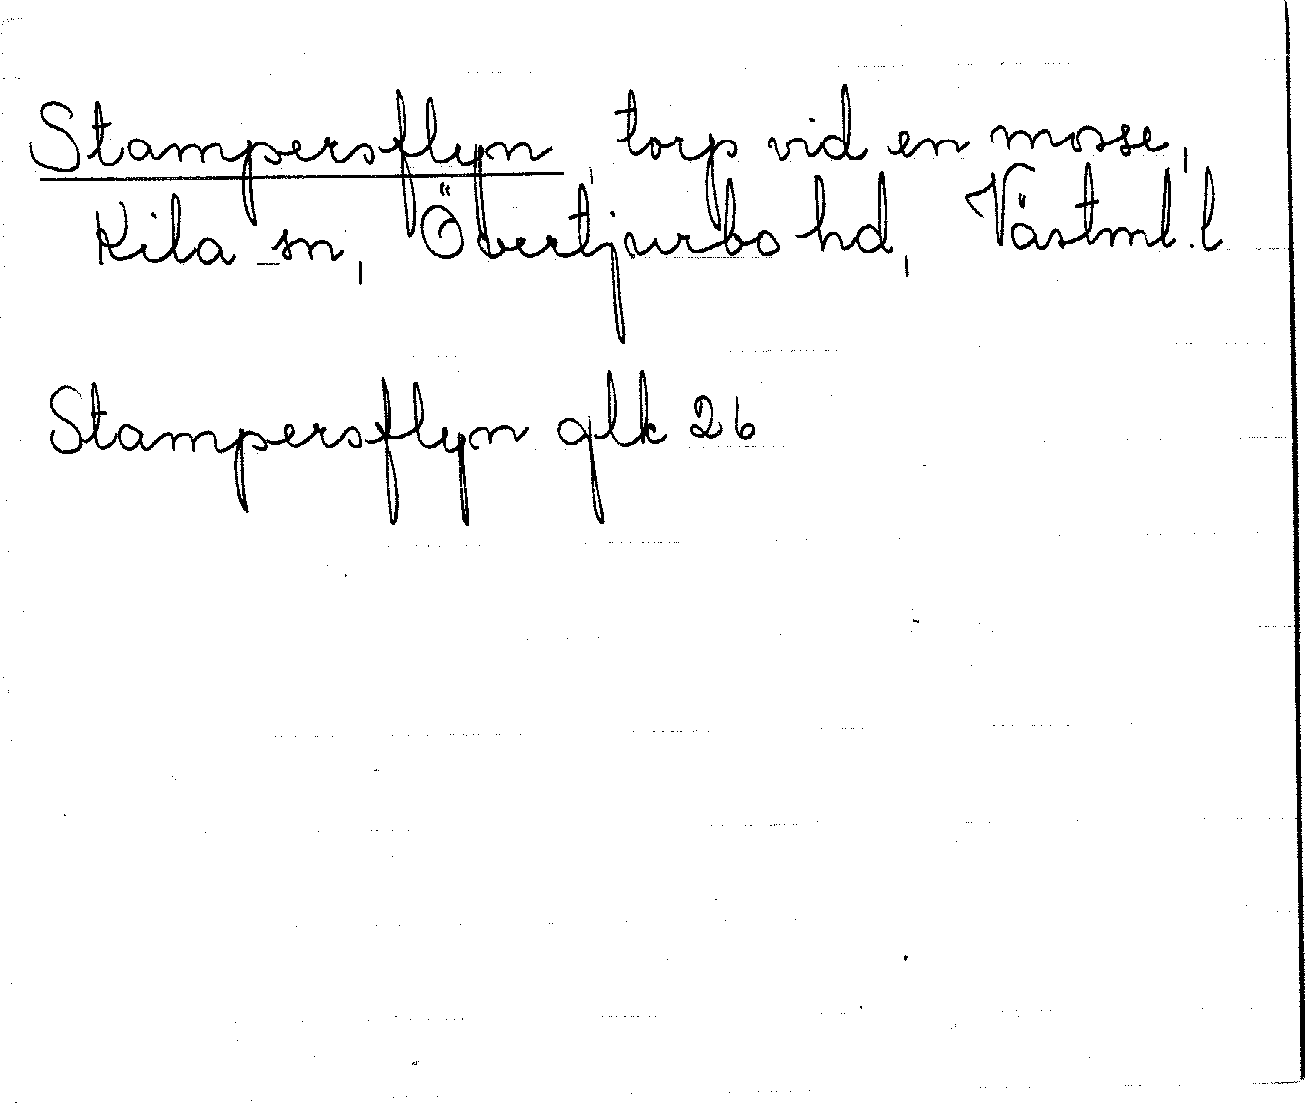 Stampersflyn, torp vid en mosse,
Kila sn, Övertjurbo hd, Västml. l
Stampersflyn glk 26